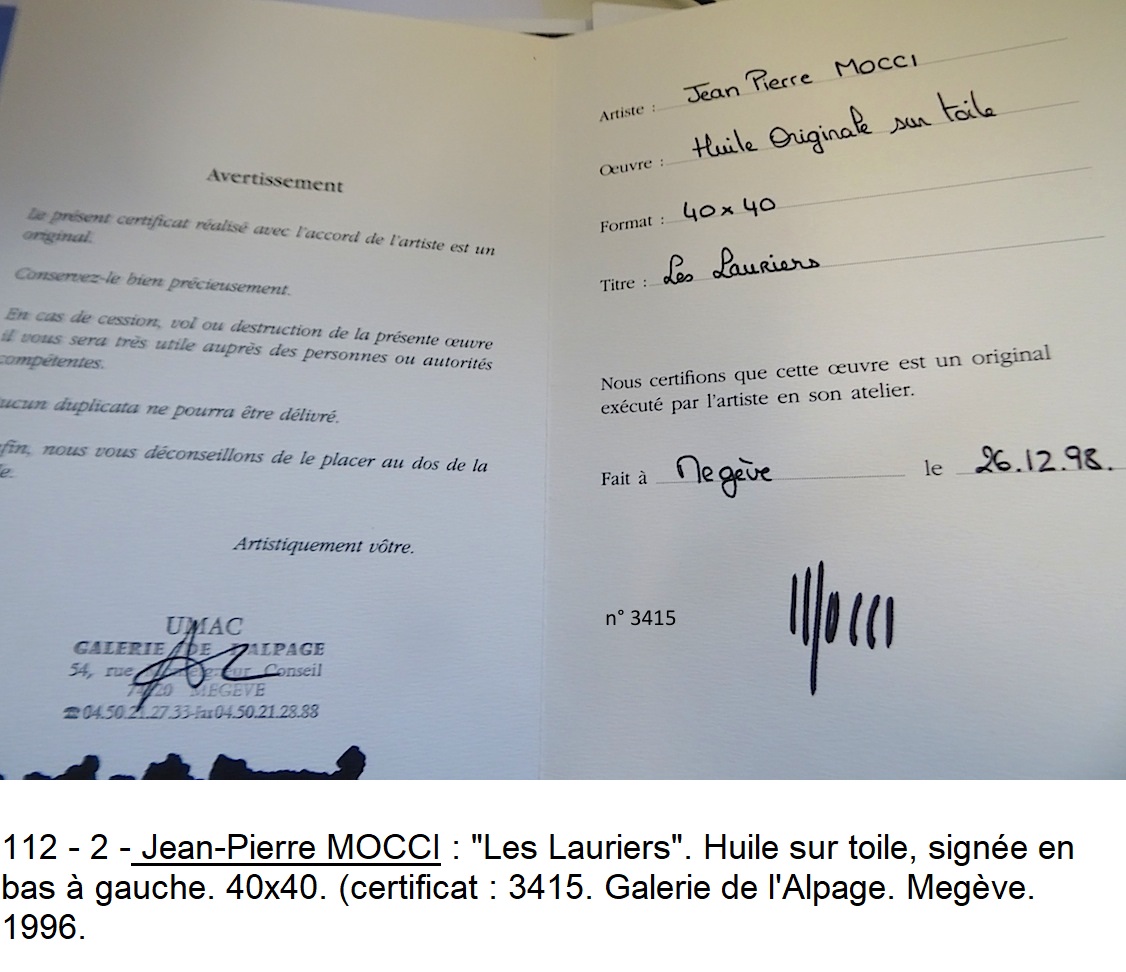 Avertissement
Le présent certificat réalisé avec l'accord de l'artiste est un
original.
Conservez-le bien précieusement.
En cas de cession, vol ou destruction de la présente œuvre
il vous sera très utile auprès des personnes ou autorités
compétentes.
ucun duplicata ne pourra être délivré.
fin, nous vous déconseillons de le placer au dos de la
e.
Artistiquement vôtre.
UMAC
GALERIE DE L'ALPAGE
54, rue Conseil
MEGEVE
☎ 04.50.21.27.33-Fax 04.50.21.28.88
Artiste : Jean Pierre MOCCI
Œuvre : Huile Originale sur toile
Format : 40 x 40
Titre : Les Lauriers
Nous certifions que cette œuvre est un original
exécuté par l'artiste en son atelier.
Fait à Megève le 26.12.98.
n° 3415
Mocci
112 - 2 - Jean-Pierre MOCCI : "Les Lauriers". Huile sur toile, signée en
bas à gauche. 40x40. (certificat : 3415. Galerie de l'Alpage. Megève.
1996.